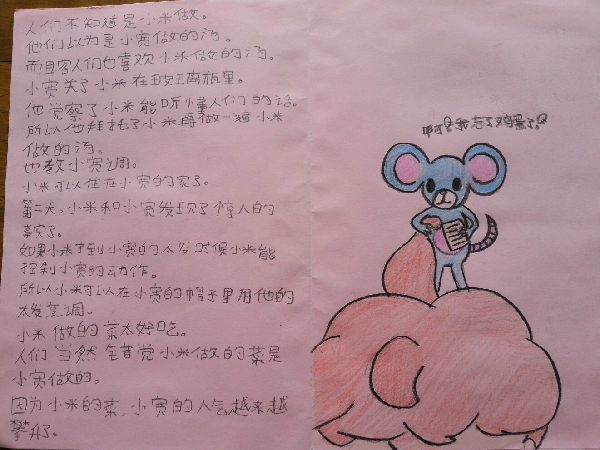 人们不知道是小米做。
他们以为是小宾做的汤。
而且客人们也喜欢小米做的汤。
小宾关了小米在玻璃瓶里。
他觉察了小米能听懂人们的话。
所以他拜托了小米再做一遍小米
做的汤。
也教小宾烹调。
小米可以住在小宾的家了。
第二天,小米和小宾发现了惊人的
事实了。
如果小米了到小宾的太 时候小米能
控制小宾的动作。
所以小米可以在小宾的帽子里用他的
太发烹调。
小米做的菜太好吃。
人们当然 觉小米做的菜是
小宾做的。
因为小米的菜,小宾的人气越来越
攀升了。
啊!我忘了鸡蛋了!